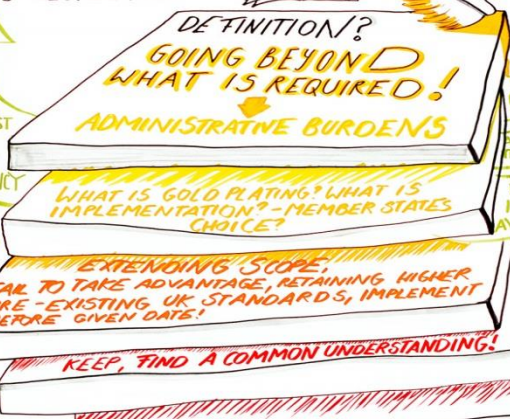 DEFINITION?
GOING BEYOND
WHAT IS REQUIRED!
ADMINISTRATIVE BURDENS
WHAT IS GOLD PLATING? WHAT IS
IMPLEMENTATION? - MEMBER STATES
CHOICE?
EXTENDING SCOPE,
TO TAKE ADVANTAGE, RETAINING HIGHER
RE-EXISTING UK STANDARDS, IMPLEMENT
GIVEN DATE!
KEEP, FIND A COMMON UNDERSTANDING!